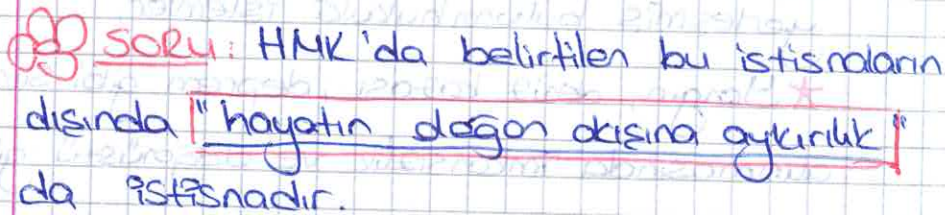 SORU: HMK'da belirtilen bu istisnaların
dışında "hayatın doğan akışına aykırılık"
da istisnadır.